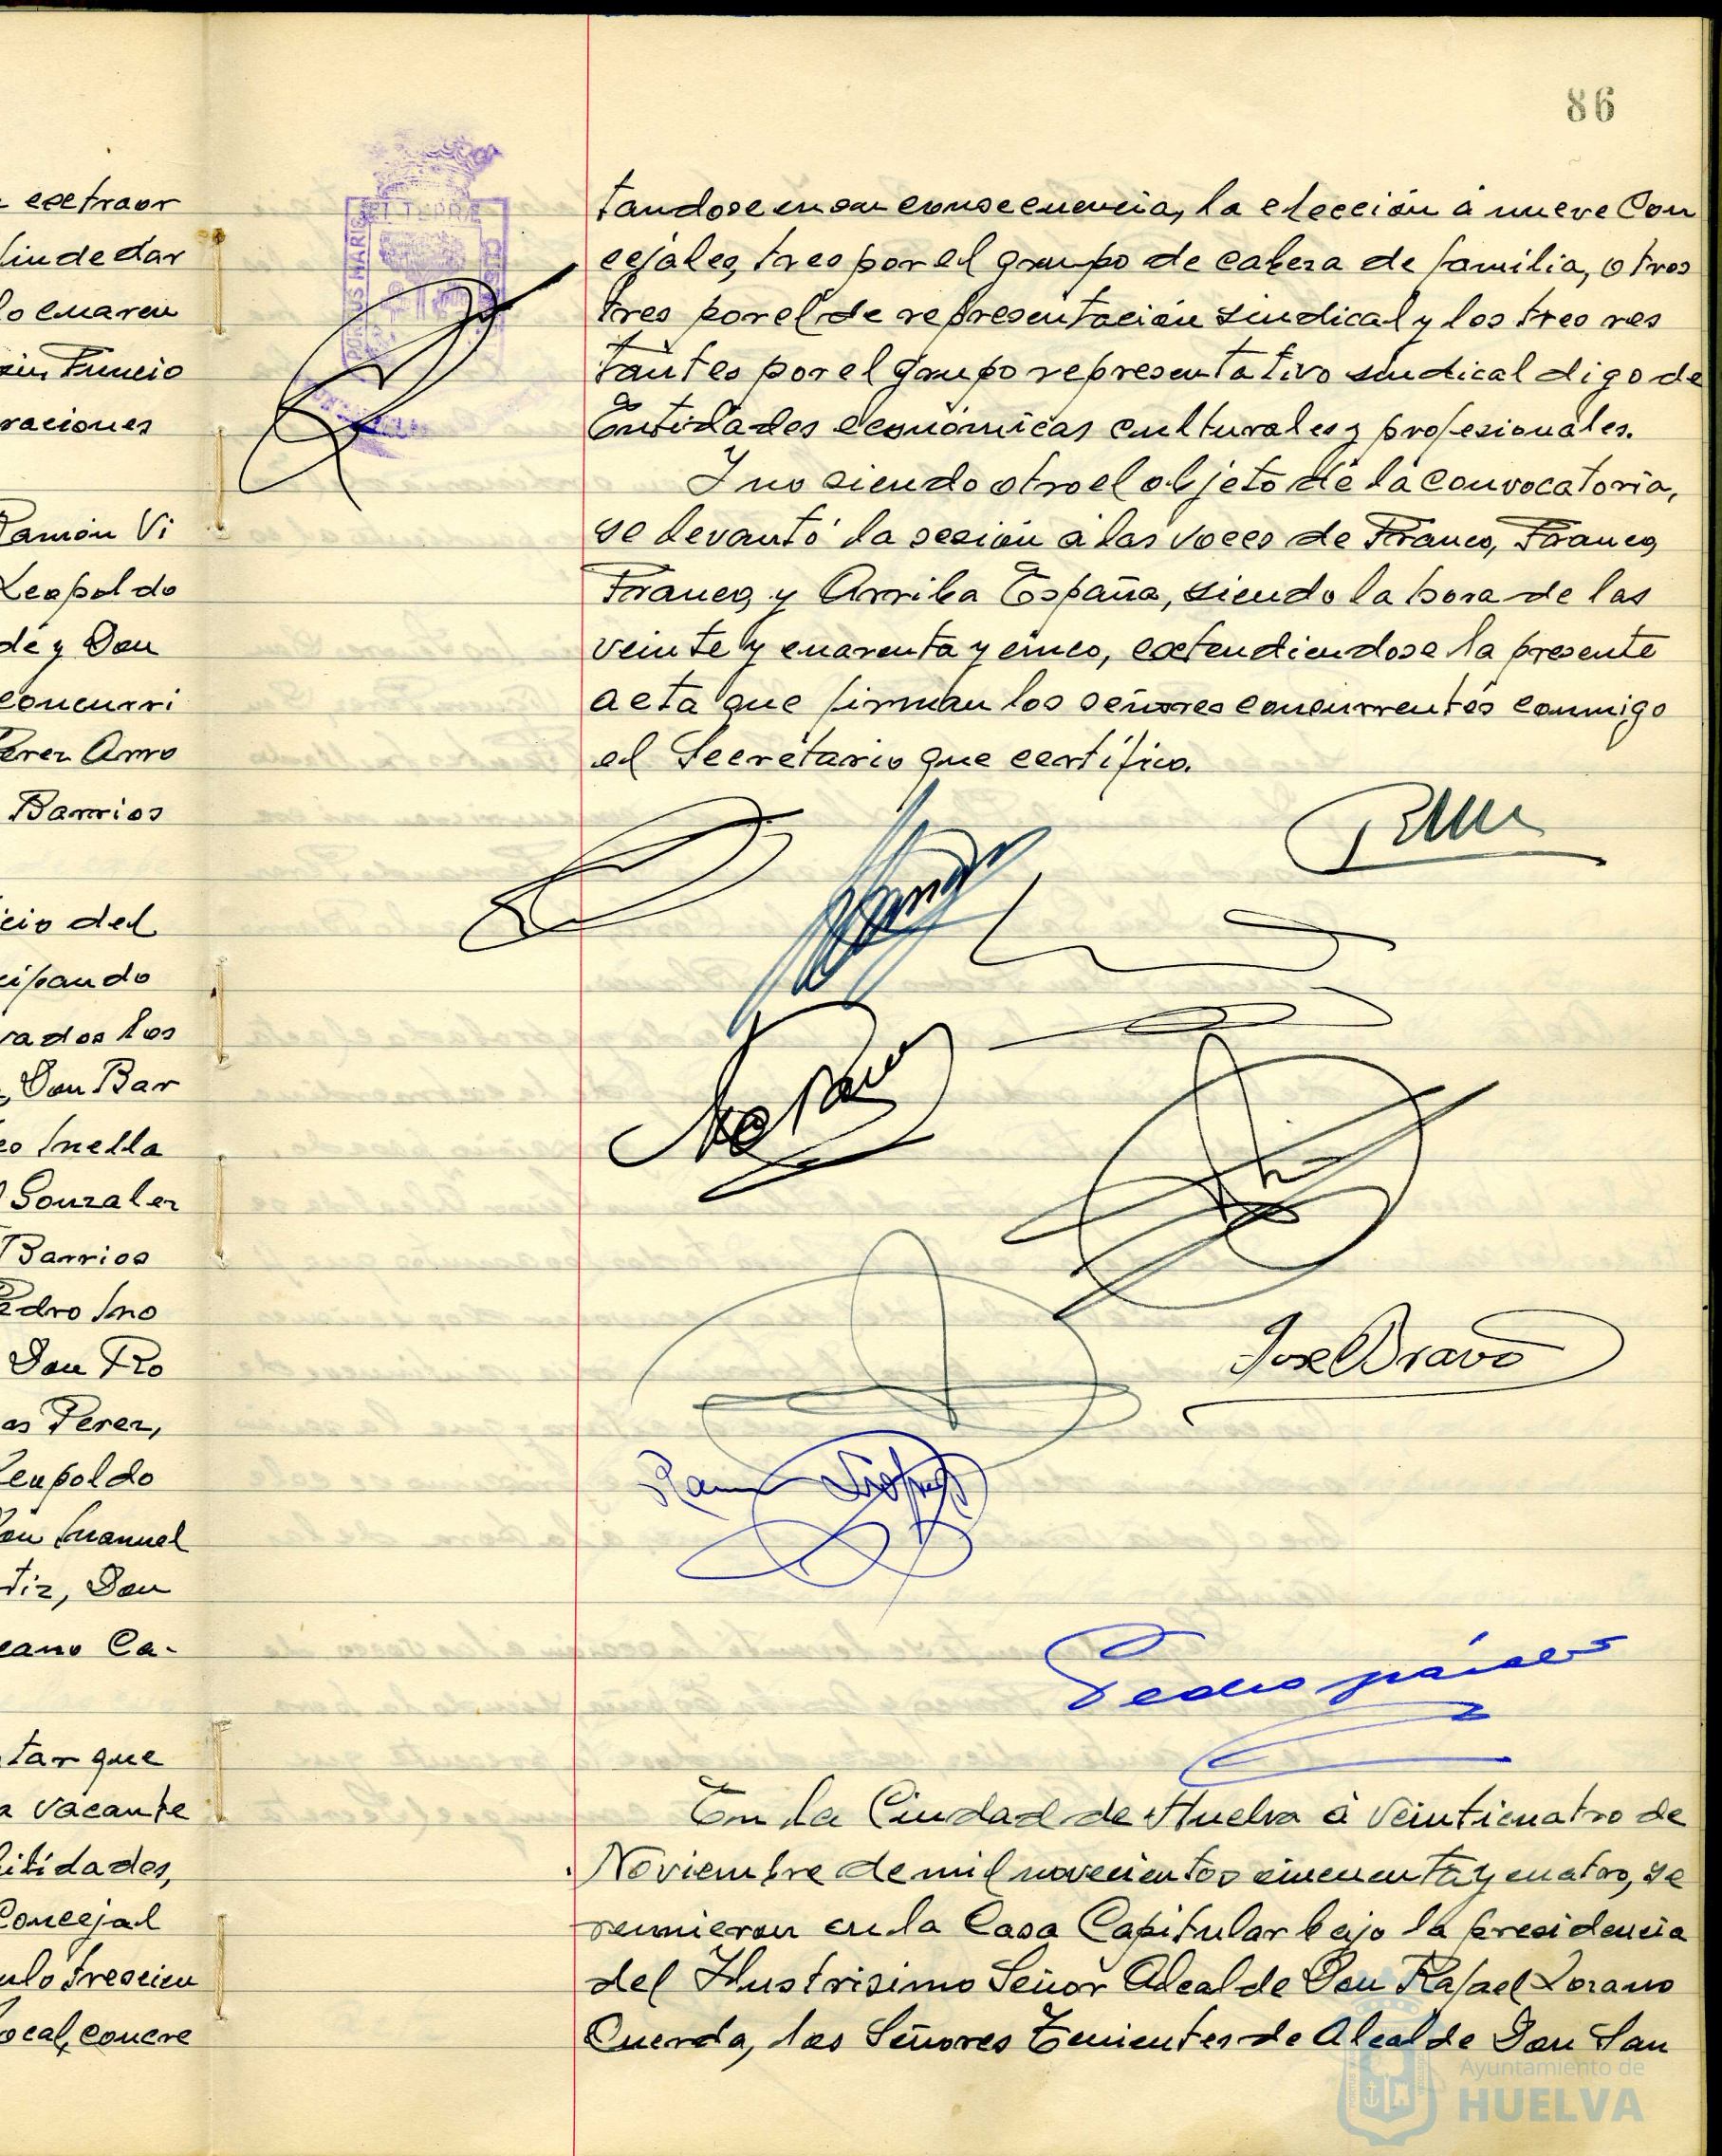 86
extraor
fin de dar
lo cuaren
Funcio
raciones
Ramón Vi
Leopoldo
de y Don
concurri
Perez Arro
Barrios
cio del
cipando
rados los
Don Bar
co Mella
Gonzalez
Barrios
Pedro Mo
Don Ro
as Perez,
Leopoldo
Don Manuel
tiz, Don
cano Ca-
tar que
a vacante
bilidades,
Concejal
ulo trescien
local, concre
tandose en su consecuencia, la elección á nueve Con
cejales, tres por el grupo de cabeza de familia, otros
tres por el de representación sindical y los tres res
tantes por el grupo representativo sindical digo de
Entidades económicas culturales y profesionales.
Y no siendo otro el objeto de la convocatoria,
se levantó la sesión á las voces de Franco, Franco,
Franco, y Arriba España, siendo la hora de las
veinte y cuarenta y cinco, extendiendose la presente
acta que firman los señores concurrentes conmigo
el Secretario que certifico.
Jose Bravo
Ramon
Pedro
En la Ciudad de Huelva á veinticuatro de
Noviembre de mil novecientos cincuenta y cuatro, se
reunieron en la Casa Capitular bajo la presidencia
del Ilustrisimo Señor Alcalde Don Rafael Lozano
Cuerda, los Señores Tenientes de Alcalde Don San
Ayuntamiento de
HUELVA